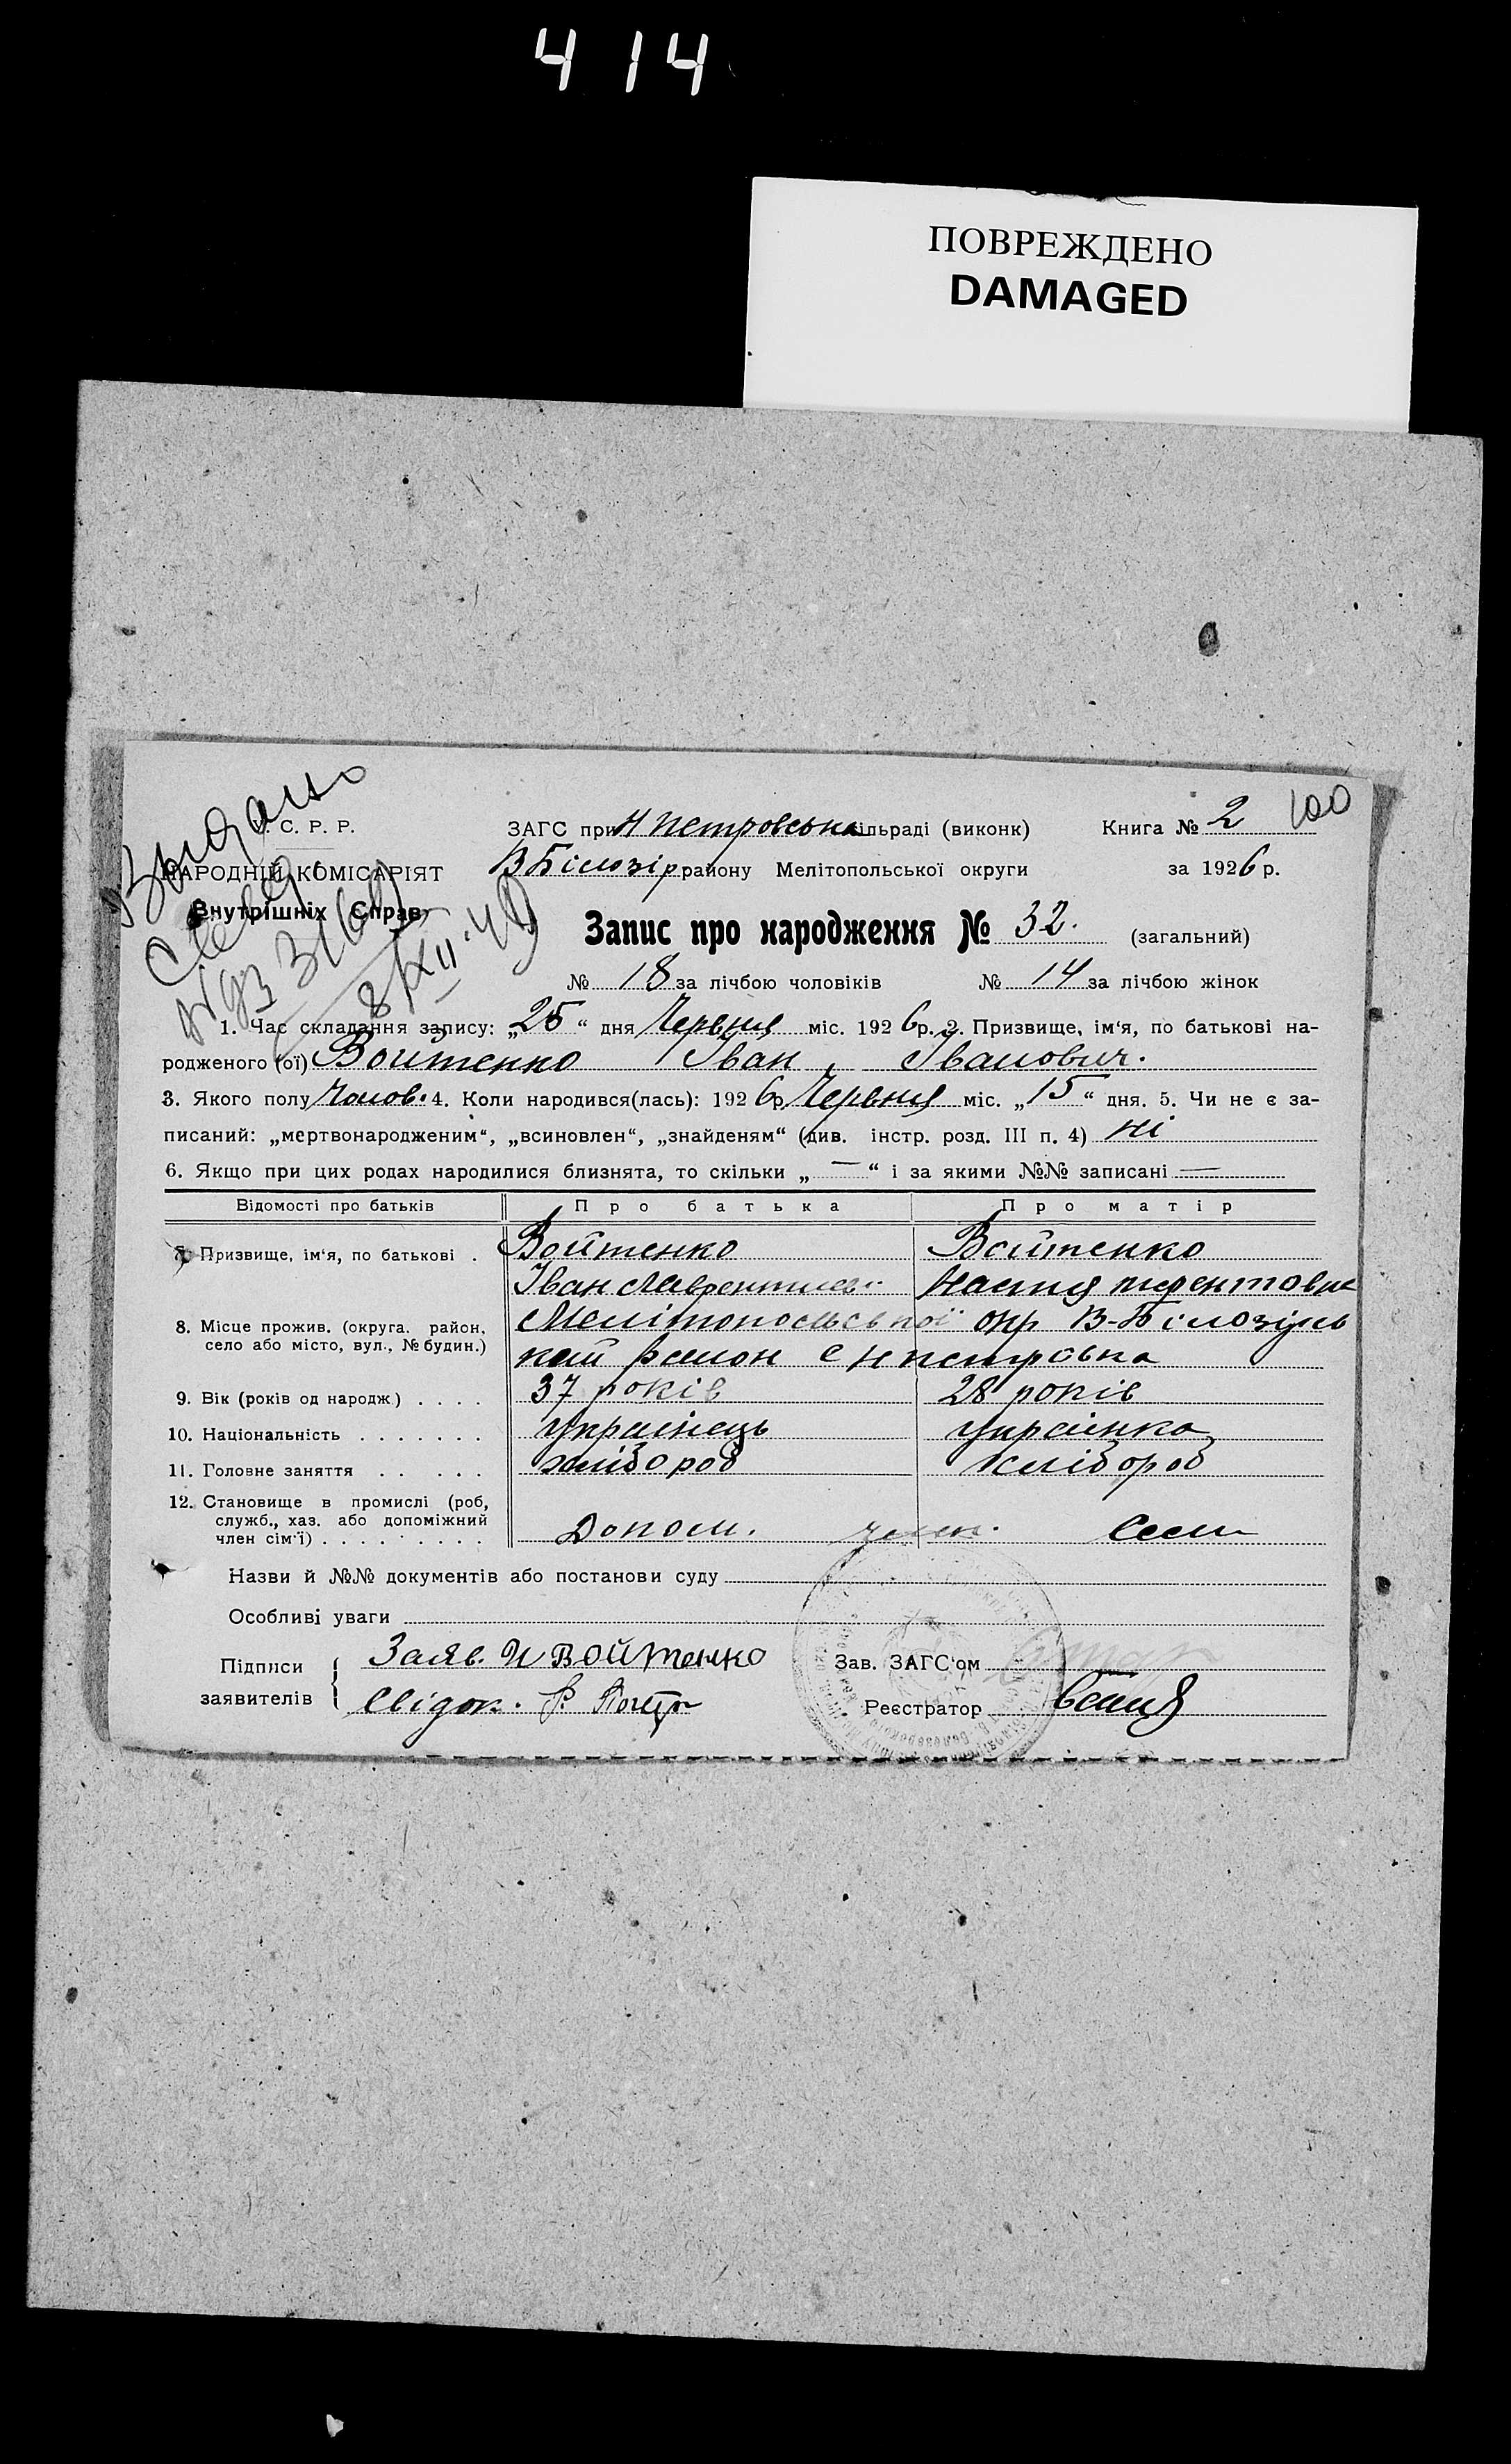 4 14
ПОВРЕЖДЕНО
DAMAGED
100
Выдано
У. С. Р. Р.
НАРОДНІЙ КОМІСАРІЯТ
Внутрішніх Справ
8/XII-49
ЗАГС при Н Петровська сільраді (виконк) Книга № 2
В Білозір району Мелітопольської округи за 1926 р.
Запис про народження № 32. (загальний)
№ 18 за лічбою чоловіків № 14 за лічбою жінок
1. Час складання запису: „25“ дня Червня міс. 1926 р. 2. Призвище, ім'я, по батькові на-
родженого (ої) Войтенко Іван Іванович.
3. Якого полу Чолов. 4. Коли народився(лась): 1926 р. Червня міс. „15“ дня. 5. Чи не є за-
писаний: „мертвонародженим“, „всиновлен“, „знайденям“ (див. інстр. розд. III п. 4) ні
6. Якщо при цих родах народилися близнята, то скільки „—“ і за якими №№ записані —
Відомості про батьків Про батька Про матір
7. Призвище, ім'я, по батькові . Войтенко Войтенко
Іван Настя
8. Місце прожив. (округа, район, Мелітопольської окр В-Білозірь
село або місто, вул., № будин.) кий район с Н петровка
9. Вік (років од народж.) . . . . 37 років 28 років
10. Національність . . . . . . . українець українка
11. Головне заняття . . . . . . хлібороб хлібороб
12. Становище в промислі (роб,
служб., хаз. або допоміжний
член сім'ї) . . . . . . . . . Допом. член. Сем
Назви й №№ документів або постанови суду
Особливі уваги
Підписи Заяв. И Войтенко Зав. ЗАГС'ом
заявителів Свідок. Реєстратор